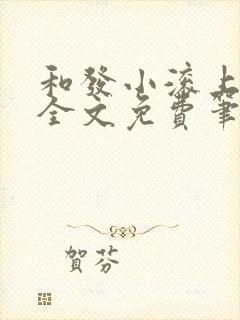 和發小滚上
全文免費筆
賀芬